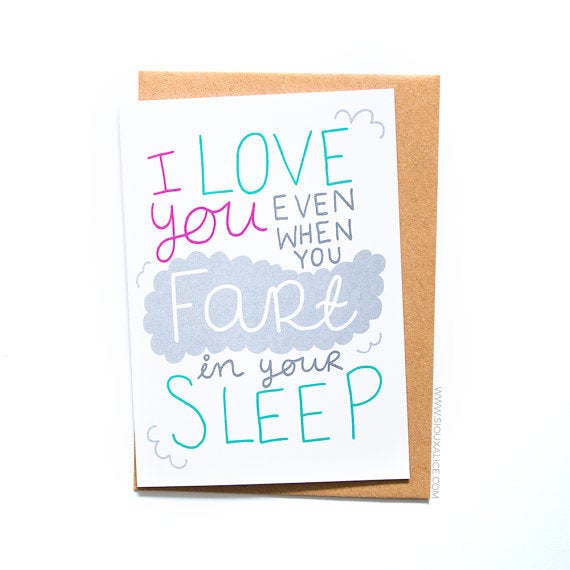 I LOVE
you EVEN
WHEN
YOU
FARt
in your
SLEEP
WWW.SIOUXALICE.COM